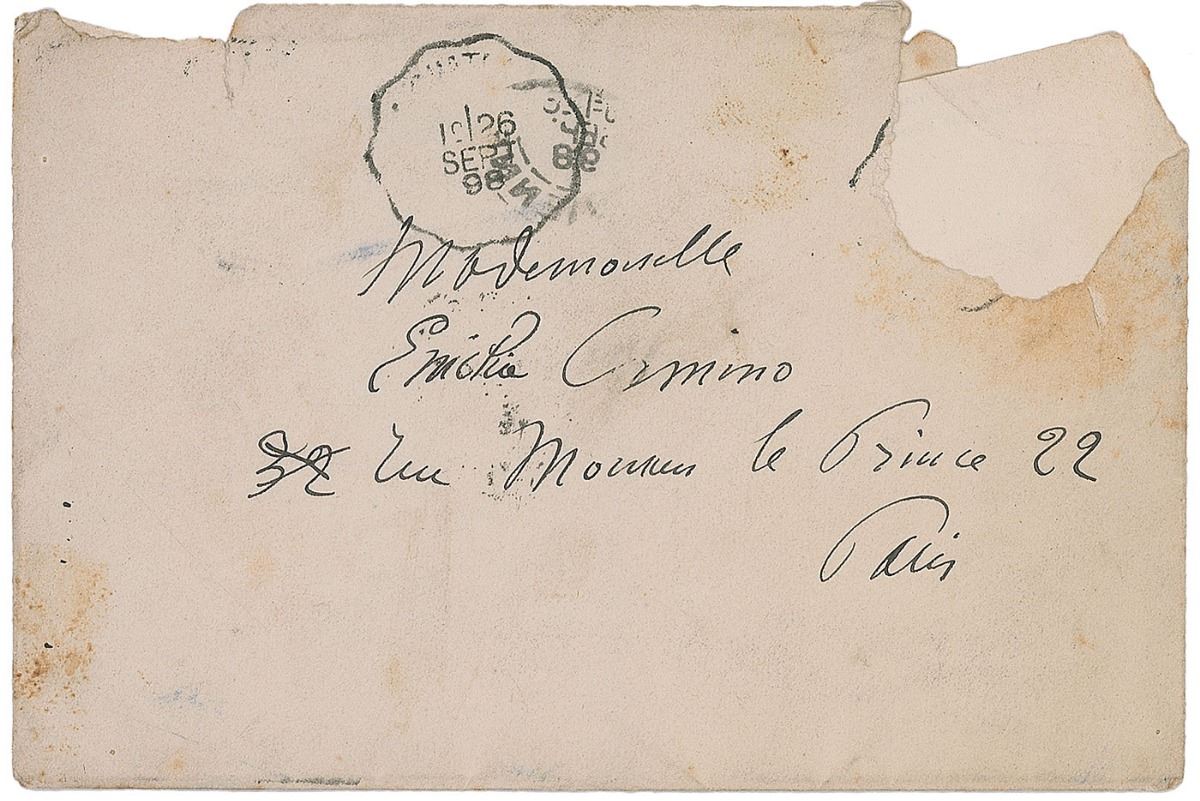 19/26
SEPT
98
Mademoiselle
Emilia Cimino
32 rue Monsieur le Prince 22
Paris